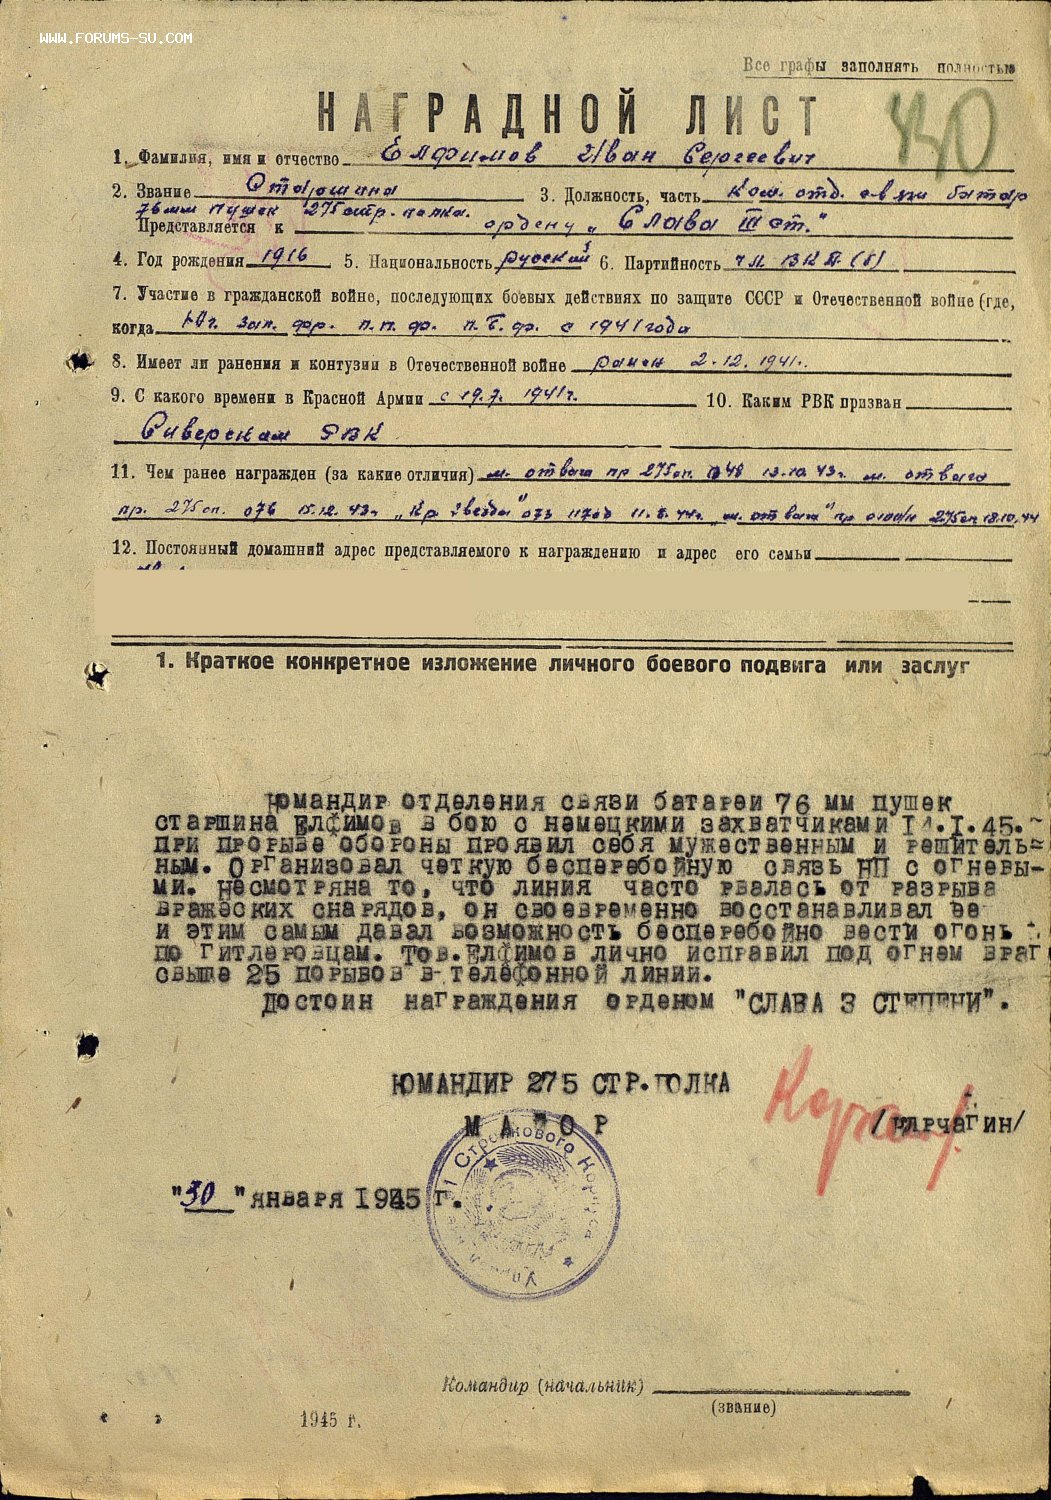 WWW.FORUMS-SU.COM
Все графы заполнять полностью
40
НАГРАДНОЙ ЛИСТ
1. Фамилия, имя и отчество Елфимов Иван Сергеевич
2. Звание Старшина 3. Должность, часть Ком. отд. связи батар
76 мм пушек 275 стр. полка.
Представляется к ордену „Слава III ст."
4. Год рождения 1916 5. Национальность русский 6. Партийность чл. ВКП(б)
7. Участие в гражданской войне, последующих боевых действиях по защите СССР и Отечественной войне (где,
когда Юг. Зап. фр. п. п. фр. п. Б. фр. с 1941 года
8. Имеет ли ранения и контузии в Отечественной войне ранен 2.12.1941г.
9. С какого времени в Красной Армии с 19.7.1941г. 10. Каким РВК призван
Сиверским РВК
11. Чем ранее награжден (за какие отличия) м. отвага пр 275 сп. 048 13.10.43г. м. отвага
пр. 275 сп. 076 15.12.43г „Кр. Звезда" 11.8.44г. „м. отвага" пр 275 сп 18.10.44
12. Постоянный домашний адрес представляемого к награждению и адрес его семьи
1. Краткое конкретное изложение личного боевого подвига или заслуг
Командир отделения связи батареи 76 мм пушек
старшина Елфимов в бою с немецкими захватчиками I4.I.45.
при прорыве обороны проявил себя мужественным и решитель-
ным. Организовал четкую бесперебойную связь НП с огневы-
ми. Несмотряна то, что линия часто рвалась от разрыва
вражеских снарядов, он своевременно восстанавливал ее
и этим самым давал возможность бесперебойно вести огонь
по гитлеровцам. Тов.Елфимов лично исправил под огнем враг
свыше 25 порывов в телефонной линии.
Достоин награждения орденом "СЛАВА 3 СТЕПЕНИ".
КОМАНДИР 275 СТР.ПОЛКА
МАЙОР /КАРЧАГИН/
"30" января I945 г.
Стрелкового Корпуса
Командир (начальник)
(звание)
1945 г.